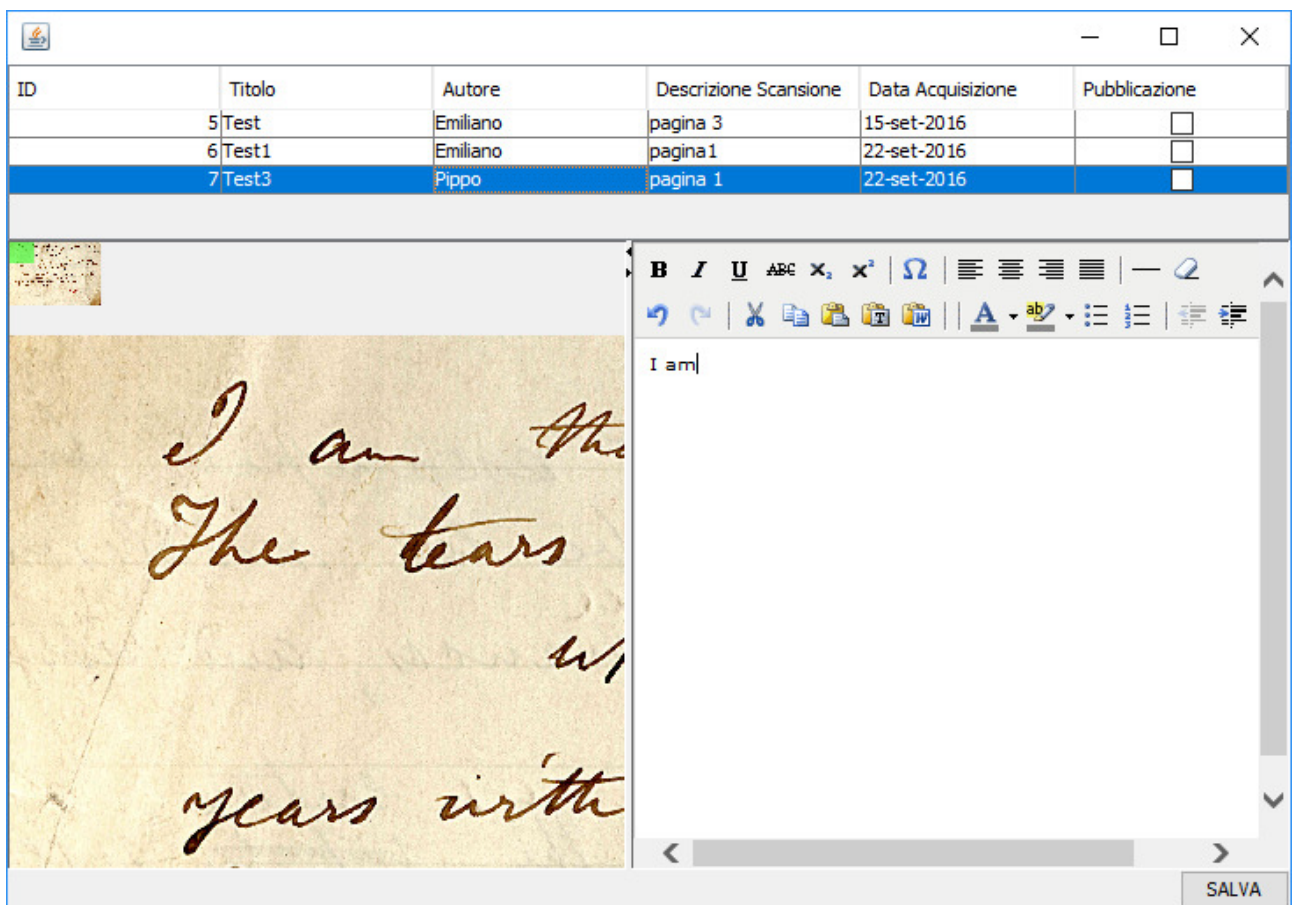 ID Titolo Autore Descrizione Scansione Data Acquisizione Pubblicazione
5 Test Emiliano pagina 3 15-set-2016
6 Test1 Emiliano pagina1 22-set-2016
7 Test3 Pippo pagina 1 22-set-2016
B I U ABC X₂ x² Ω
T W A ab
I am
I am the
The tears
years with
SALVA